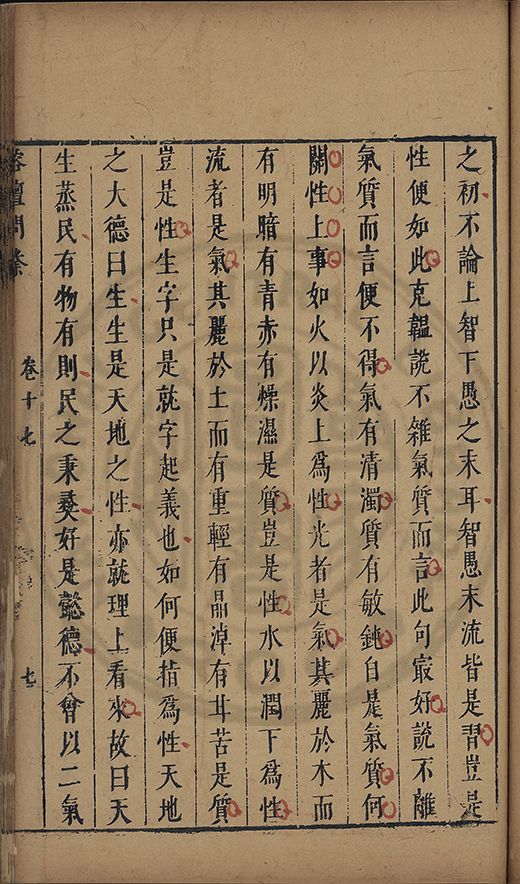 之初不論上智下愚之末耳智愚末流皆是習豈是
性便如此克韞說不雜氣質而言此句㝡好說不離
氣質而言便不得氣有清濁質有敏鈍自是氣質何
關性上事如火以炎上爲性光者是氣其麗於木而
有明暗有青赤有燥濕是質豈是性水以潤下爲性
流者是氣其麗於土而有重輕有晶淖有甘苦是質
豈是性生字只是就字起義也如何便指爲性天地
之大德曰生生是天地之性亦就理上看來故曰天
生蒸民有物有則民之秉彝好是懿德不曾以二氣
榕壇問業
卷十七
七